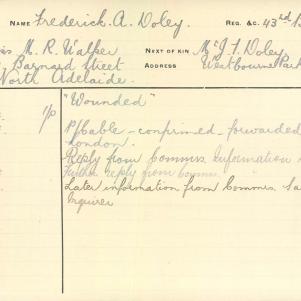 NAME Frederick. A. Doley. REG. &C. 43rd B
iss M. R. Walker NEXT OF KIN Mr J. F. Doley
Barnard Street ADDRESS Westbourne Park
North Adelaide.
"Wounded"
1/0 Pf Cable - confirmed - forwarded
London.
Reply from Commrs Information
Further reply from Commrs.
Later information from Commrs.
Inquirer